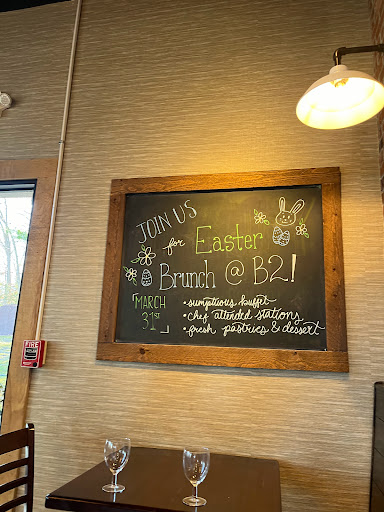 JOIN US
for Easter
Brunch @ B2!
MARCH
31ST
• sumptious buffet
• chef attended stations
• fresh pastries & dessert
FIRE